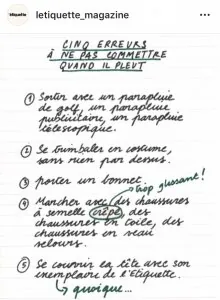 L'Étiquette
letiquette_magazine
...
CINQ ERREURS
À NE PAS COMMETTRE
QUAND IL PLEUT
① Sortir avec un parapluie
de golf, un parapluie
publicitaire, un parapluie
télescopique.
② Se trimbaler en costume,
sans rien par dessus.
③ porter un bonnet.
trop glissant!
④ Marcher avec des chaussures
à semelle crêpe, des
chaussures en toile, des
chaussures en veau
velours.
⑤ Se couvrir la tête avec son
exemplaire de l'Étiquette.
quoique...